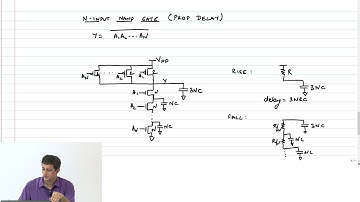 N-INPUT NAND GATE (PROP DELAY)
Y = A1A2...AN
VDD
AN 2 A2 2 A1 2
Y
3NC
A1 N
NC
A2 N
NC
AN N
NC
RISE:
R
3NC
delay = 3NRC
FALL:
R/N
3NC
R/N
NC
NC